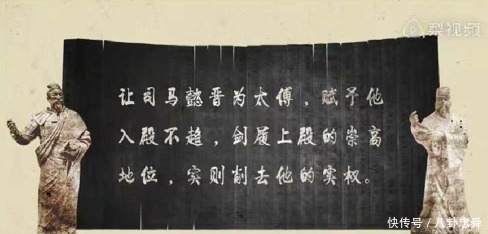 梨视频
让司马懿晋为太傅，赋予他
入殿不趋，剑履上殿的崇高
地位，实则削去他的实权。
快传号／八卦忠舜